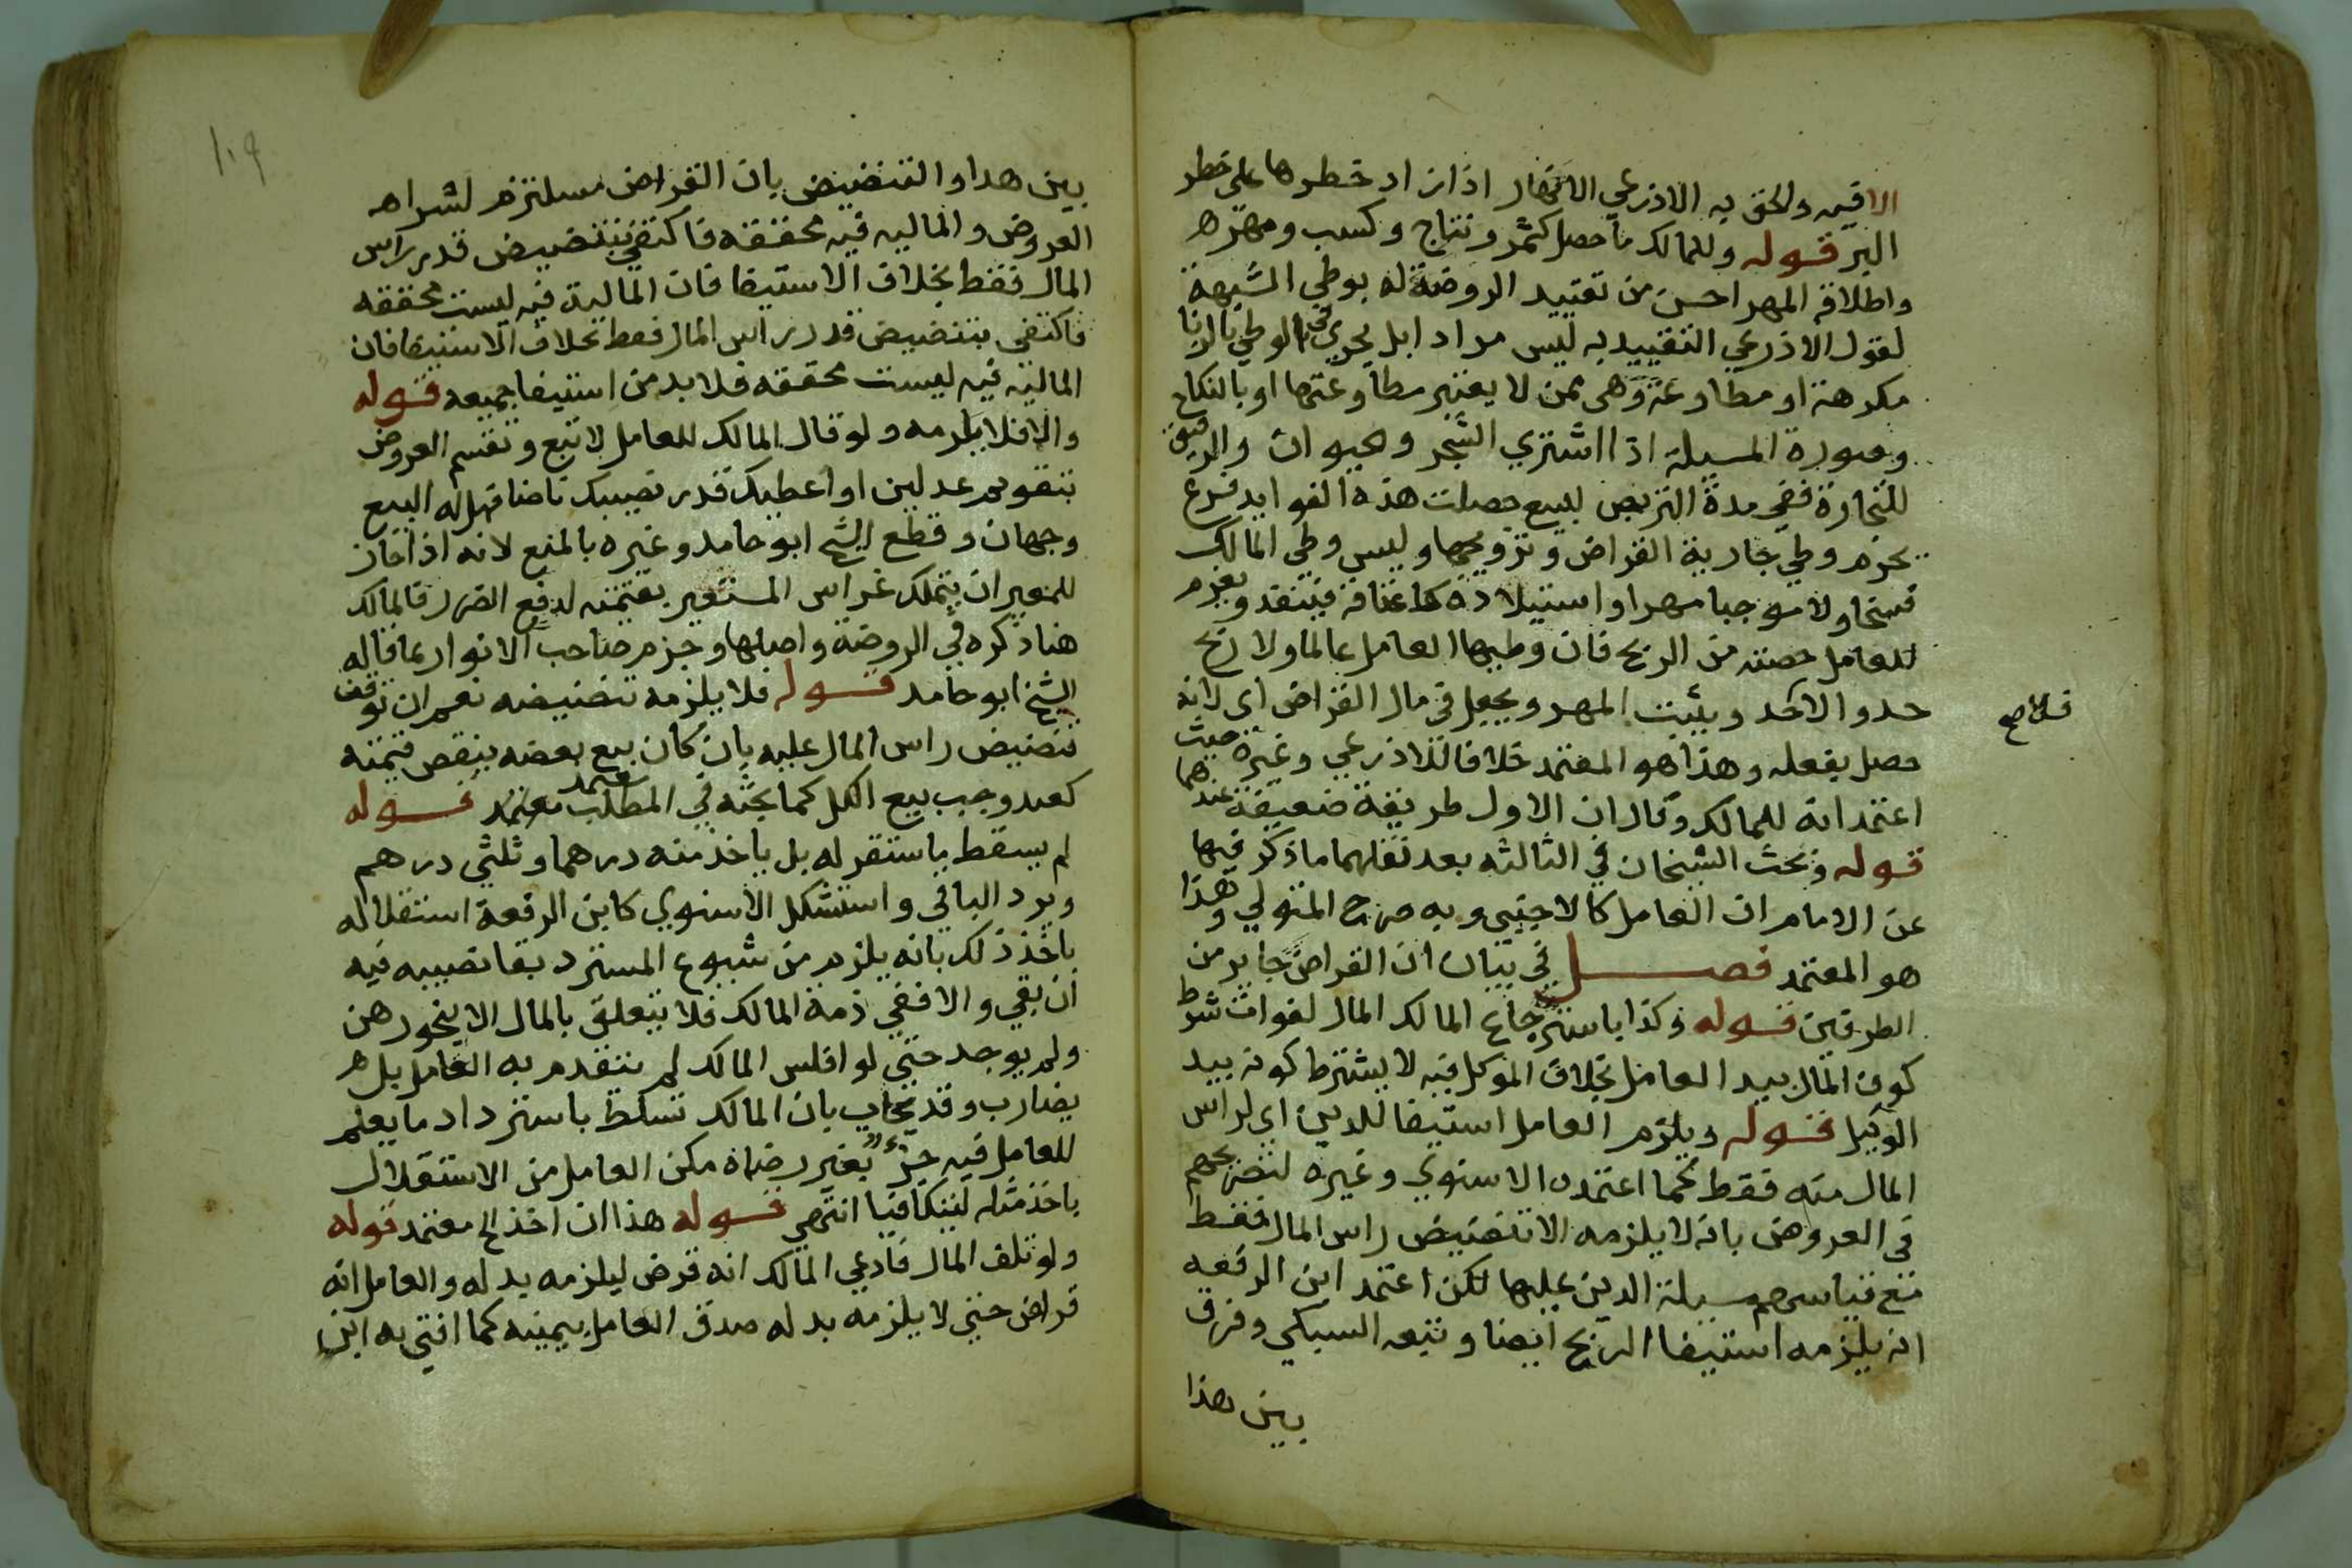 الا فيه والحق به الاذرعي الانهار اذا زاد خطرها على خطر
البر قوله وللمالك ما حصل كثمر ونتاج وكسب ومهر
واطلاقه المهر احسن من تقييد الروضة له بوطي الشبهة
لقول الاذرعي التقييد به ليس مراد ابل يجري في الوطي بالزنا
مكرهة او مطاوعة وهي ممن لا يعتبر مطاوعتها او بالنكاح
وصورة المسيلة اذا اشتري الشجر والحيوان والرقيق
للتجارة ففي مدة التربص لبيع حصلت هذه الفوايد فرع
يحرم وطي جارية القراض وتزويجها وليس وطي المالك
فسخا ولا موجبا مهرا واستيلاده كاعتاقه فينفذ ويغرم
للعامل حصته من الربح فان وطيها العامل عالما ولا ربح
حد والا لا حد ويثبت المهر ويجعل في مال القراض اي لانه
حصل بفعله وهذا هو المعتمد خلافا للاذرعي وغيره حيث
اعتمد انه للمالك وقال ان الاول طريقة ضعيفة عندهما
قوله وبحث الشيخان في الثالثه بعد نقلهما ما ذكر فيها
عن الامام ان العامل كالاجنبي وبه صرح المتولي وهذا
هو المعتمد فصل في بيان ان القراض جايز من
الطرفين قوله وكذا باسترجاع المالك المال لفوات شرط
كون المال بيد العامل بخلاف الموكل فيه لا يشترط كونه بيد
الوكيل قوله ويلزم العامل استيفا للدين اي لراس
المال منه فقط كما اعتمده الاسنوي وغيره لتصريحهم
في العروض بانه لا يلزمه الا تنضيض راس المال فقط
مع قياسهم مسيلة الدين عليها لكن اعتمد ابن الرفعه
انه يلزمه استيفا الربح ايضا وتبعه السبكي وفرق
بين هذا
١٠٩
بين هذا والتنضيض بان القراض مستلزم لشراه
العروض والماليه فيه محققه فاكتفي بتنضيض قدر راس
المال فقط بخلاف الاستيفا فان المالية فيه ليست محققه
فاكتفي بتنضيض قدر راس المال فقط بخلاف الاستيفا فان
الماليه فيه ليست محققه فلا بد من استيفا جميعه قوله
والا فلا يلزمه ولو قال المالك للعامل لا تبع ونقسم العروض
بتقويم عدلين او اعطيك قدر نصيبك ناضا فهل له البيع
وجهان وقطع الشيخ ابو حامد وغيره بالمنع لانه اذا جاز
للمعير ان يتملك غراس المستعير بقيمته لدفع الضرر فالمالك
هنا ذكره في الروضة واصلها وجزم صاحب الانوار بما قاله
الشيخ ابو حامد قوله فلا يلزمه تنضيضه نعم ان توقف
تنضيض راس المال عليه بان كان بيع بعضه ينقص قيمته
كعبد وجب بيع الكل كما بحثه في المطلب معتمد قوله
لم يسقط باستقر له بل ياخذ منه درهما وثلثي درهم
ويرد الباقي واستشكل الاسنوي كابن الرفعة استقلاله
باخذ ذلك بانه يلزم من شيوع المسترد بقا نصيبه فيه
ان بقي والا ففي ذمة المالك فلا يتعلق بالمال الا بنحو رهن
ولم يوجد حتي لو افلس المالك لم يتقدم به العامل بل
يضارب وقد يجاب بان المالك تسلط باسترداد ما يعلم
للعامل فيه جزء بغير رضاه مكن العامل من الاستقلال
باخذ مثله ليتكافيا انتهي قوله هذا ان اخذ الخ معتمد قوله
ولو تلف المال فادعي المالك انه قرض ليلزمه بدله والعامل انه
قراض حتي لا يلزمه بدله صدق العامل بيمينه كما افتي به ابن